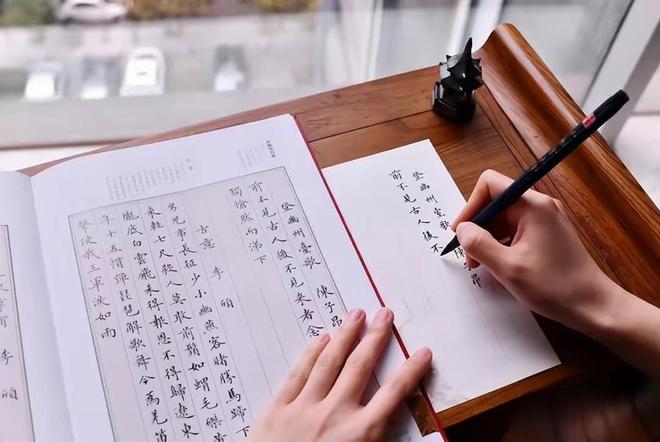 登幽州臺歌 陳子昂
前不見古人後不
登幽州臺歌 陳子昂
前不見古人後不見來者念
獨愴然而涕下
古意 李頎
男兒事長征少小幽燕客賭勝馬蹄下
來輕七尺殺人莫敢前鬚如蝟毛磔
隴底白雲飛未得報恩不得歸遼東
年十五慣彈琵琶解歌舞今為羌笛
聲使我三軍淚如雨
李頎